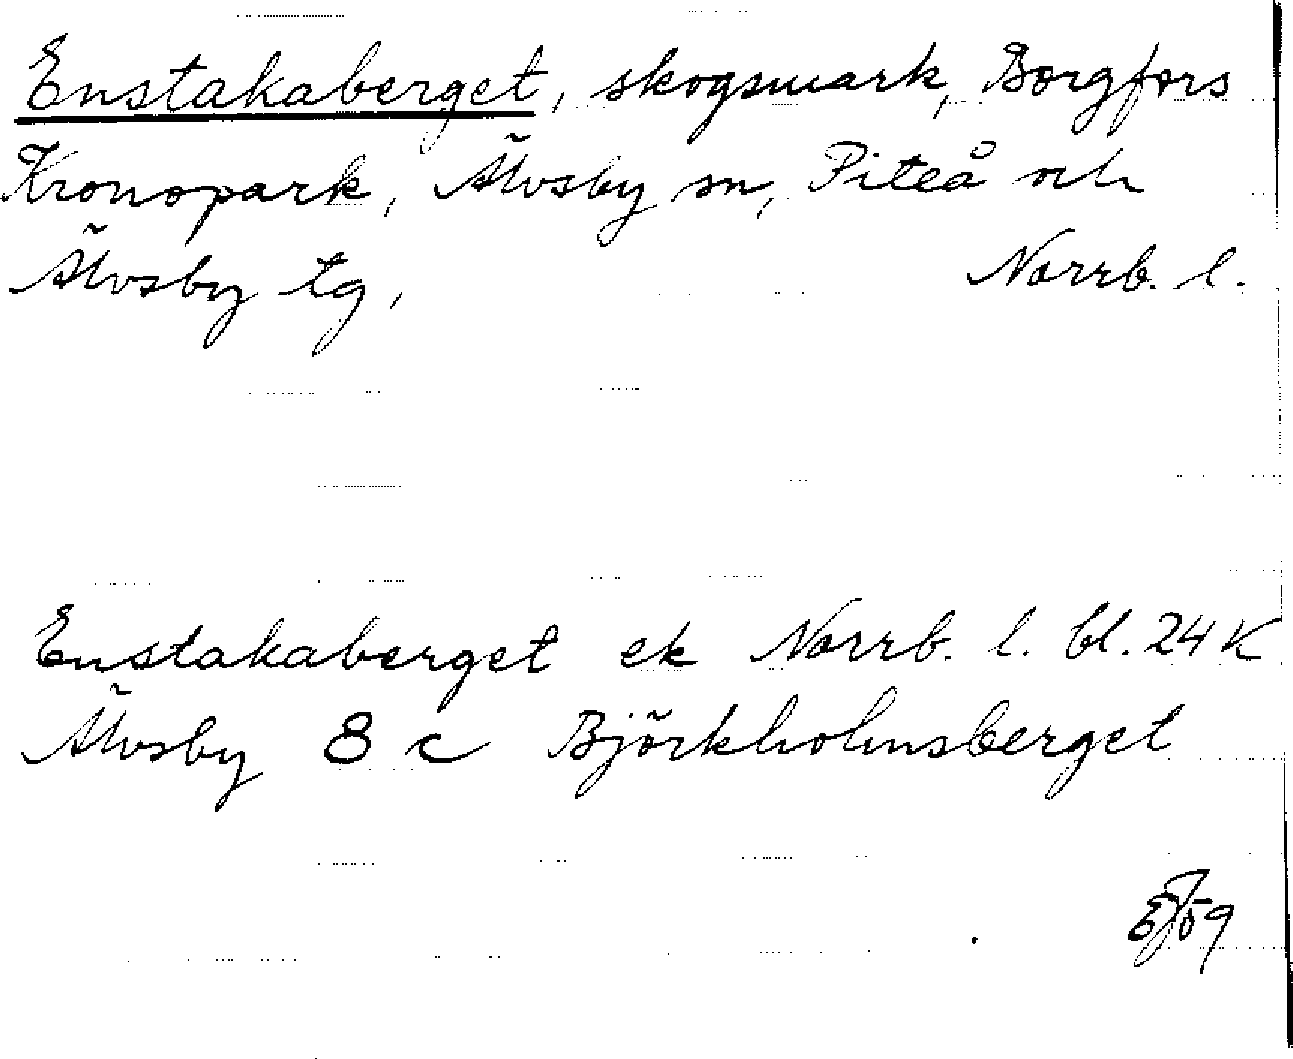 Enstakaberget, skogsmark, Borgfors
Kronopark, Älvsby sn, Piteå och
Älvsby tg, Norrb. l.
Enstakaberget ek Norrb. l. bl. 24 K
Älvsby 8 c Björkholmsberget